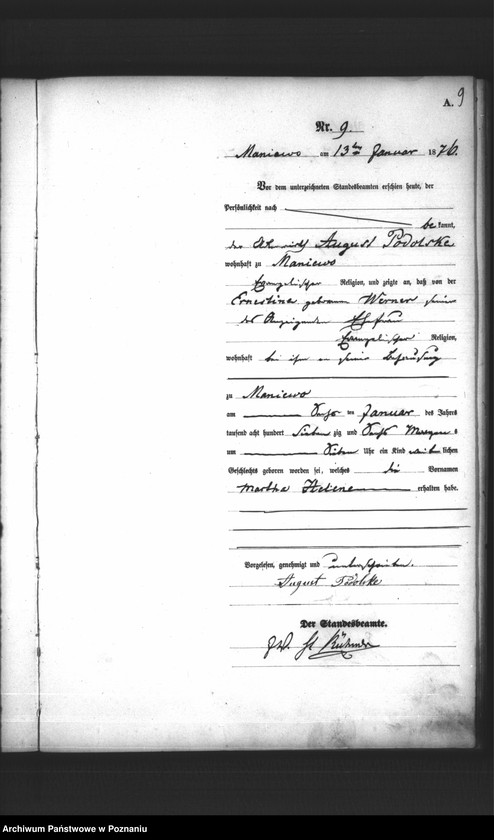 A. 9
Nr. 9.
Maniewo am 13ten Januar 1876.
Vor dem unterzeichneten Standesbeamten erschien heute, der
Persönlichkeit nach
be kannt,
der August Podolske
wohnhaft zu Maniewo
Evangelischer Religion, und zeigte an, daß von der
Ernestine geborenen Werner seiner
des Anzeigenden Ehefrau
Evangelischer Religion,
wohnhaft bei ihm in seiner Behausung
zu Maniewo
am Januar des Jahrs
tausend acht hundert sieben zig und sechs Morgens
um sieben Uhr ein Kind weiblichen
Geschlechts geboren worden sei, welches die Vornamen
Martha Helene erhalten habe.
Vorgelesen, genehmigt und unterschrieben.
August Podolske
Der Standesbeamte.
Archiwum Państwowe w Poznaniu